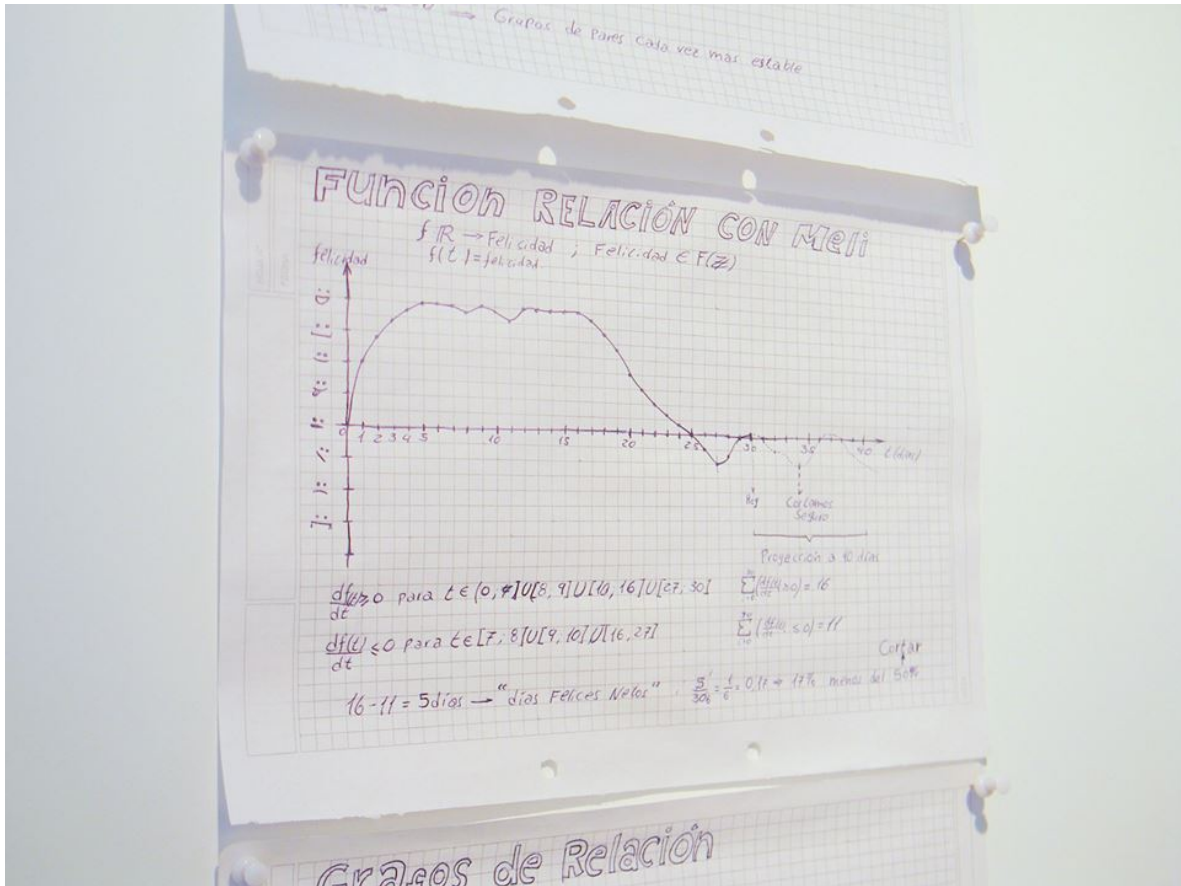 Grupos de pares cada vez mas estable
Funcion RELACIÓN CON Meli
f R → Felicidad ; Felicidad ∈ F(ℤ)
f(t)=felicidad
felicidad
0 1 2 3 4 5 10 15 20 25 30 35 40 t(dias)
Hoy
Cortamos
Seguro
Proyección a 10 días
df(t)/dt ≥0 para t∈(0,4]U[8,9]U[10,16]U[27,30]
∑(df(t)/dt ≥0)=16
df(t)/dt ≤0 para t∈[7,8]U[9,10]U[16,27]
∑(df(t)/dt ≤0)=11
Cortar
16-11=5dias → "dias Felices Netos" 5/30 = 1/6 = 0,17 → 17% menos del 50%
de Relación